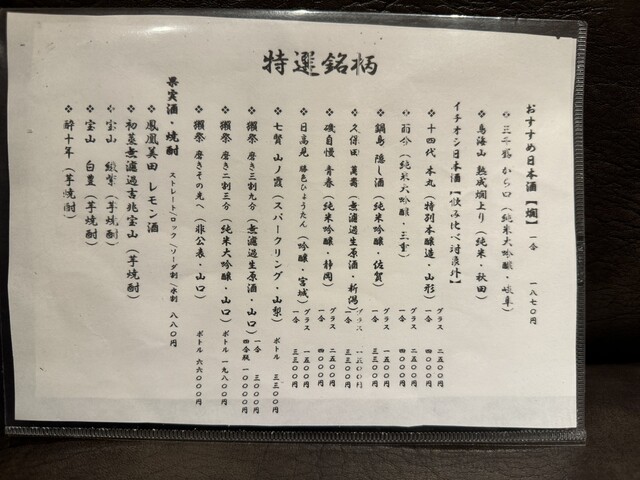 特選銘柄
おすすめ日本酒【燗】 一合 一八七〇円
❖ 三千盛 からロ（純米大吟醸・岐阜）
❖ 鳥海山 熟成燗上り（純米・秋田）
イチオシ日本酒【飲み比べ対象外】
❖ 十四代 本丸（特別本醸造・山形） グラス 二五〇〇円
一合 四〇〇〇円
❖ 而今（純米大吟醸・三重） グラス 二五〇〇円
一合 四〇〇〇円
❖ 鍋島 隠し酒（純米吟醸・佐賀） グラス 一五〇〇円
一合 三三〇〇円
❖ 久保田 萬壽（無濾過生原酒・新潟） グラス 一五〇〇円
一合 三三〇〇円
❖ 磯自慢 青春（純米吟醸・静岡） グラス 二五〇〇円
一合 四〇〇〇円
❖ 日高見 勝色ひょうたん（吟醸・宮城） グラス 一五〇〇円
一合 三三〇〇円
❖ 七賢 山ノ霞（スパークリング・山梨） ボトル 三三〇〇円
❖ 獺祭 磨き三割九分（無濾過生原酒・山口） 一合 三〇〇〇円
四合瓶 一〇〇〇〇円
❖ 獺祭 磨き二割三分（純米大吟醸・山口） ボトル 一九八〇〇円
❖ 獺祭 磨きその先へ（非公表・山口） ボトル 六六〇〇〇円
果実酒・焼酎
ストレート/ロック/ソーダ割/水割 八八〇円
❖ 鳳凰美田 レモン酒
❖ 初蒸無濾過吉兆宝山（芋焼酎）
❖ 宝山 綾紫（芋焼酎）
❖ 宝山 白豊（芋焼酎）
❖ 酔十年（芋焼酎）